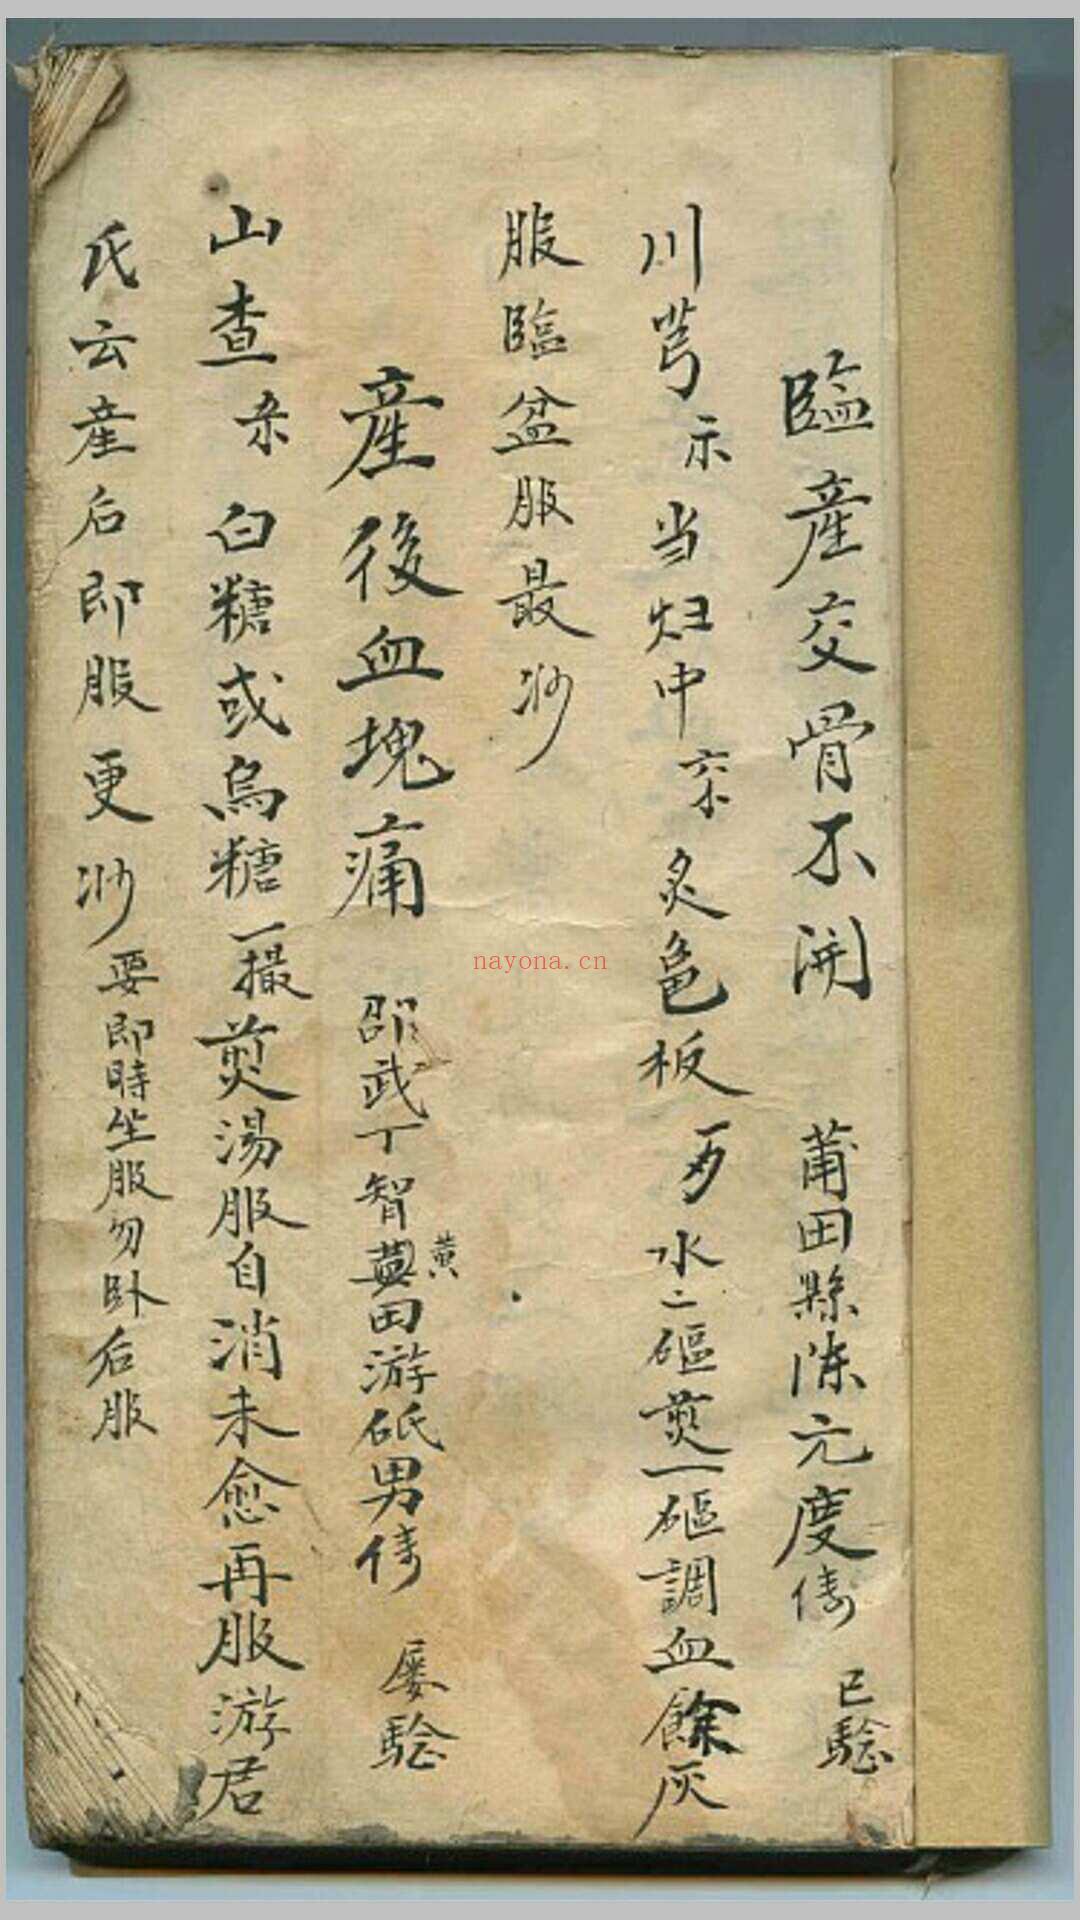 臨產交骨不開 莆田縣陳元度傳 已驗
川芎 当归中 炙龜板 水二碗煎一碗調血餘灰
服臨盆服最妙
產後血塊痛 邵武丁智黃田游砥男傳 屡驗
山查 白糖或烏糖一撮煎湯服自消未愈再服游君
氏云產后即服更妙 要即時坐服勿卧后服
nayona.cn